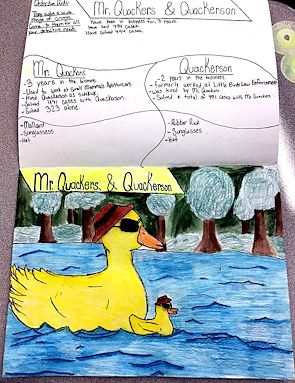 Detective Kids
Mr. Quackers & Quackerson
Have been in business for 3 years.
Have had 491 cases
Have solved 491 cases.
Mr. Quackers
- 3 years in the business
- Used to work at Small Mammals Apartment
- Hired Quackerson as sidekick
- Solved 491 cases with Quackerson
- Solved 323 alone
- Mallard
- Sunglasses
- Hat
Quackerson
- 2 years in the business
- Formerly worked at Little Birds Law Enforcement
- Was hired by Mr. Quackers
- Solved a total of 491 cases with Mr. Quackers
- Rubber Duck
- Sunglasses
- Hat
Mr. Quackers, & Quackerson